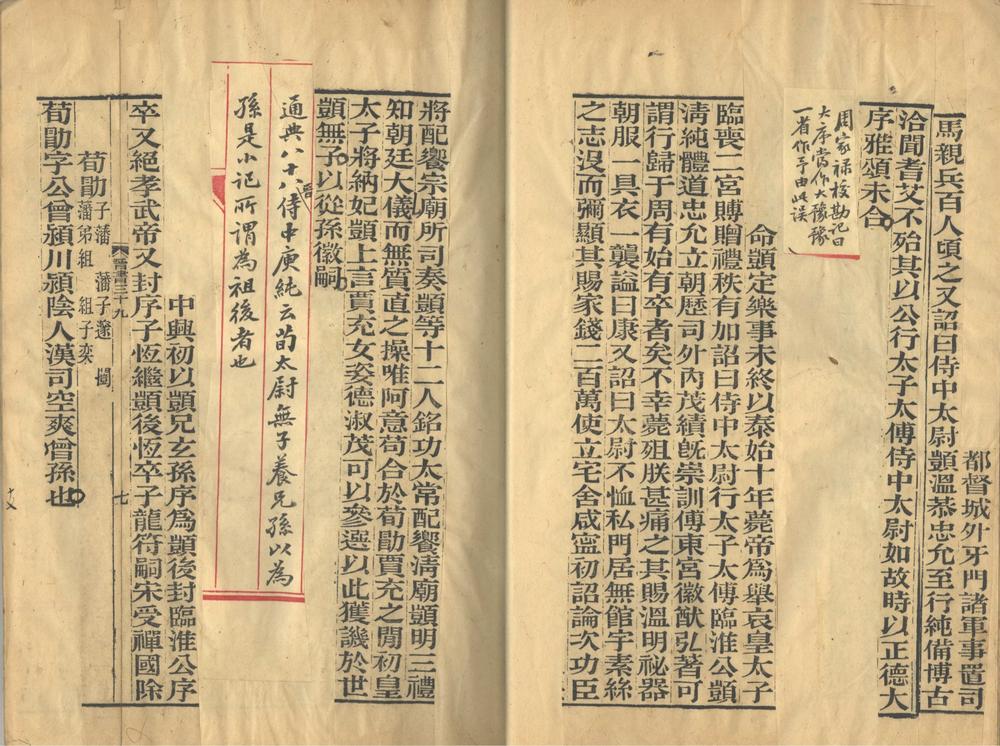 都督城外牙門諸軍事置司
馬親兵百人頃之又詔曰侍中太尉顗溫恭忠允至行純備博古
洽聞耆艾不殆其以公行太子太傅侍中太尉如故時以正德大
序雅頌未合
周家祿校勘記曰
大序當作大豫豫
一省作予由此誤
命顗定樂事未終以泰始十年薨帝爲舉哀皇太子
臨喪二宮賻贈禮秩有加詔曰侍中太尉行太子太傅臨淮公顗
淸純體道忠允立朝歷司外內茂績旣崇訓傅東宮徽猷弘著可
謂行歸于周有始有卒者矣不幸薨殂朕甚痛之其賜溫明祕器
朝服一具衣一襲謚曰康又詔曰太尉不恤私門居無館宇素絲
之志沒而彌顯其賜家錢二百萬使立宅舍咸寧初詔論次功臣
將配饗宗廟所司奏顗等十二人銘功太常配饗淸廟顗明三禮
知朝廷大儀而無質直之操唯阿意苟合於荀勖賈充之閒初皇
太子將納妃顗上言賈充女姿德淑茂可以參選以此獲譏於世
顗無子以從孫徽嗣
通典八十八晉侍中庾純云荀太尉無子養兄孫以為
孫是小記所謂為祖後者也
中興初以顗兄玄孫序爲顗後封臨淮公序
卒又絕孝武帝又封序子恆繼顗後恆卒子龍符嗣宋受禪國除
晉書三十九
七
荀勖子藩 藩子邃 闓
藩弟組 組子奕
荀勖字公曾潁川潁陰人漢司空爽曾孫也